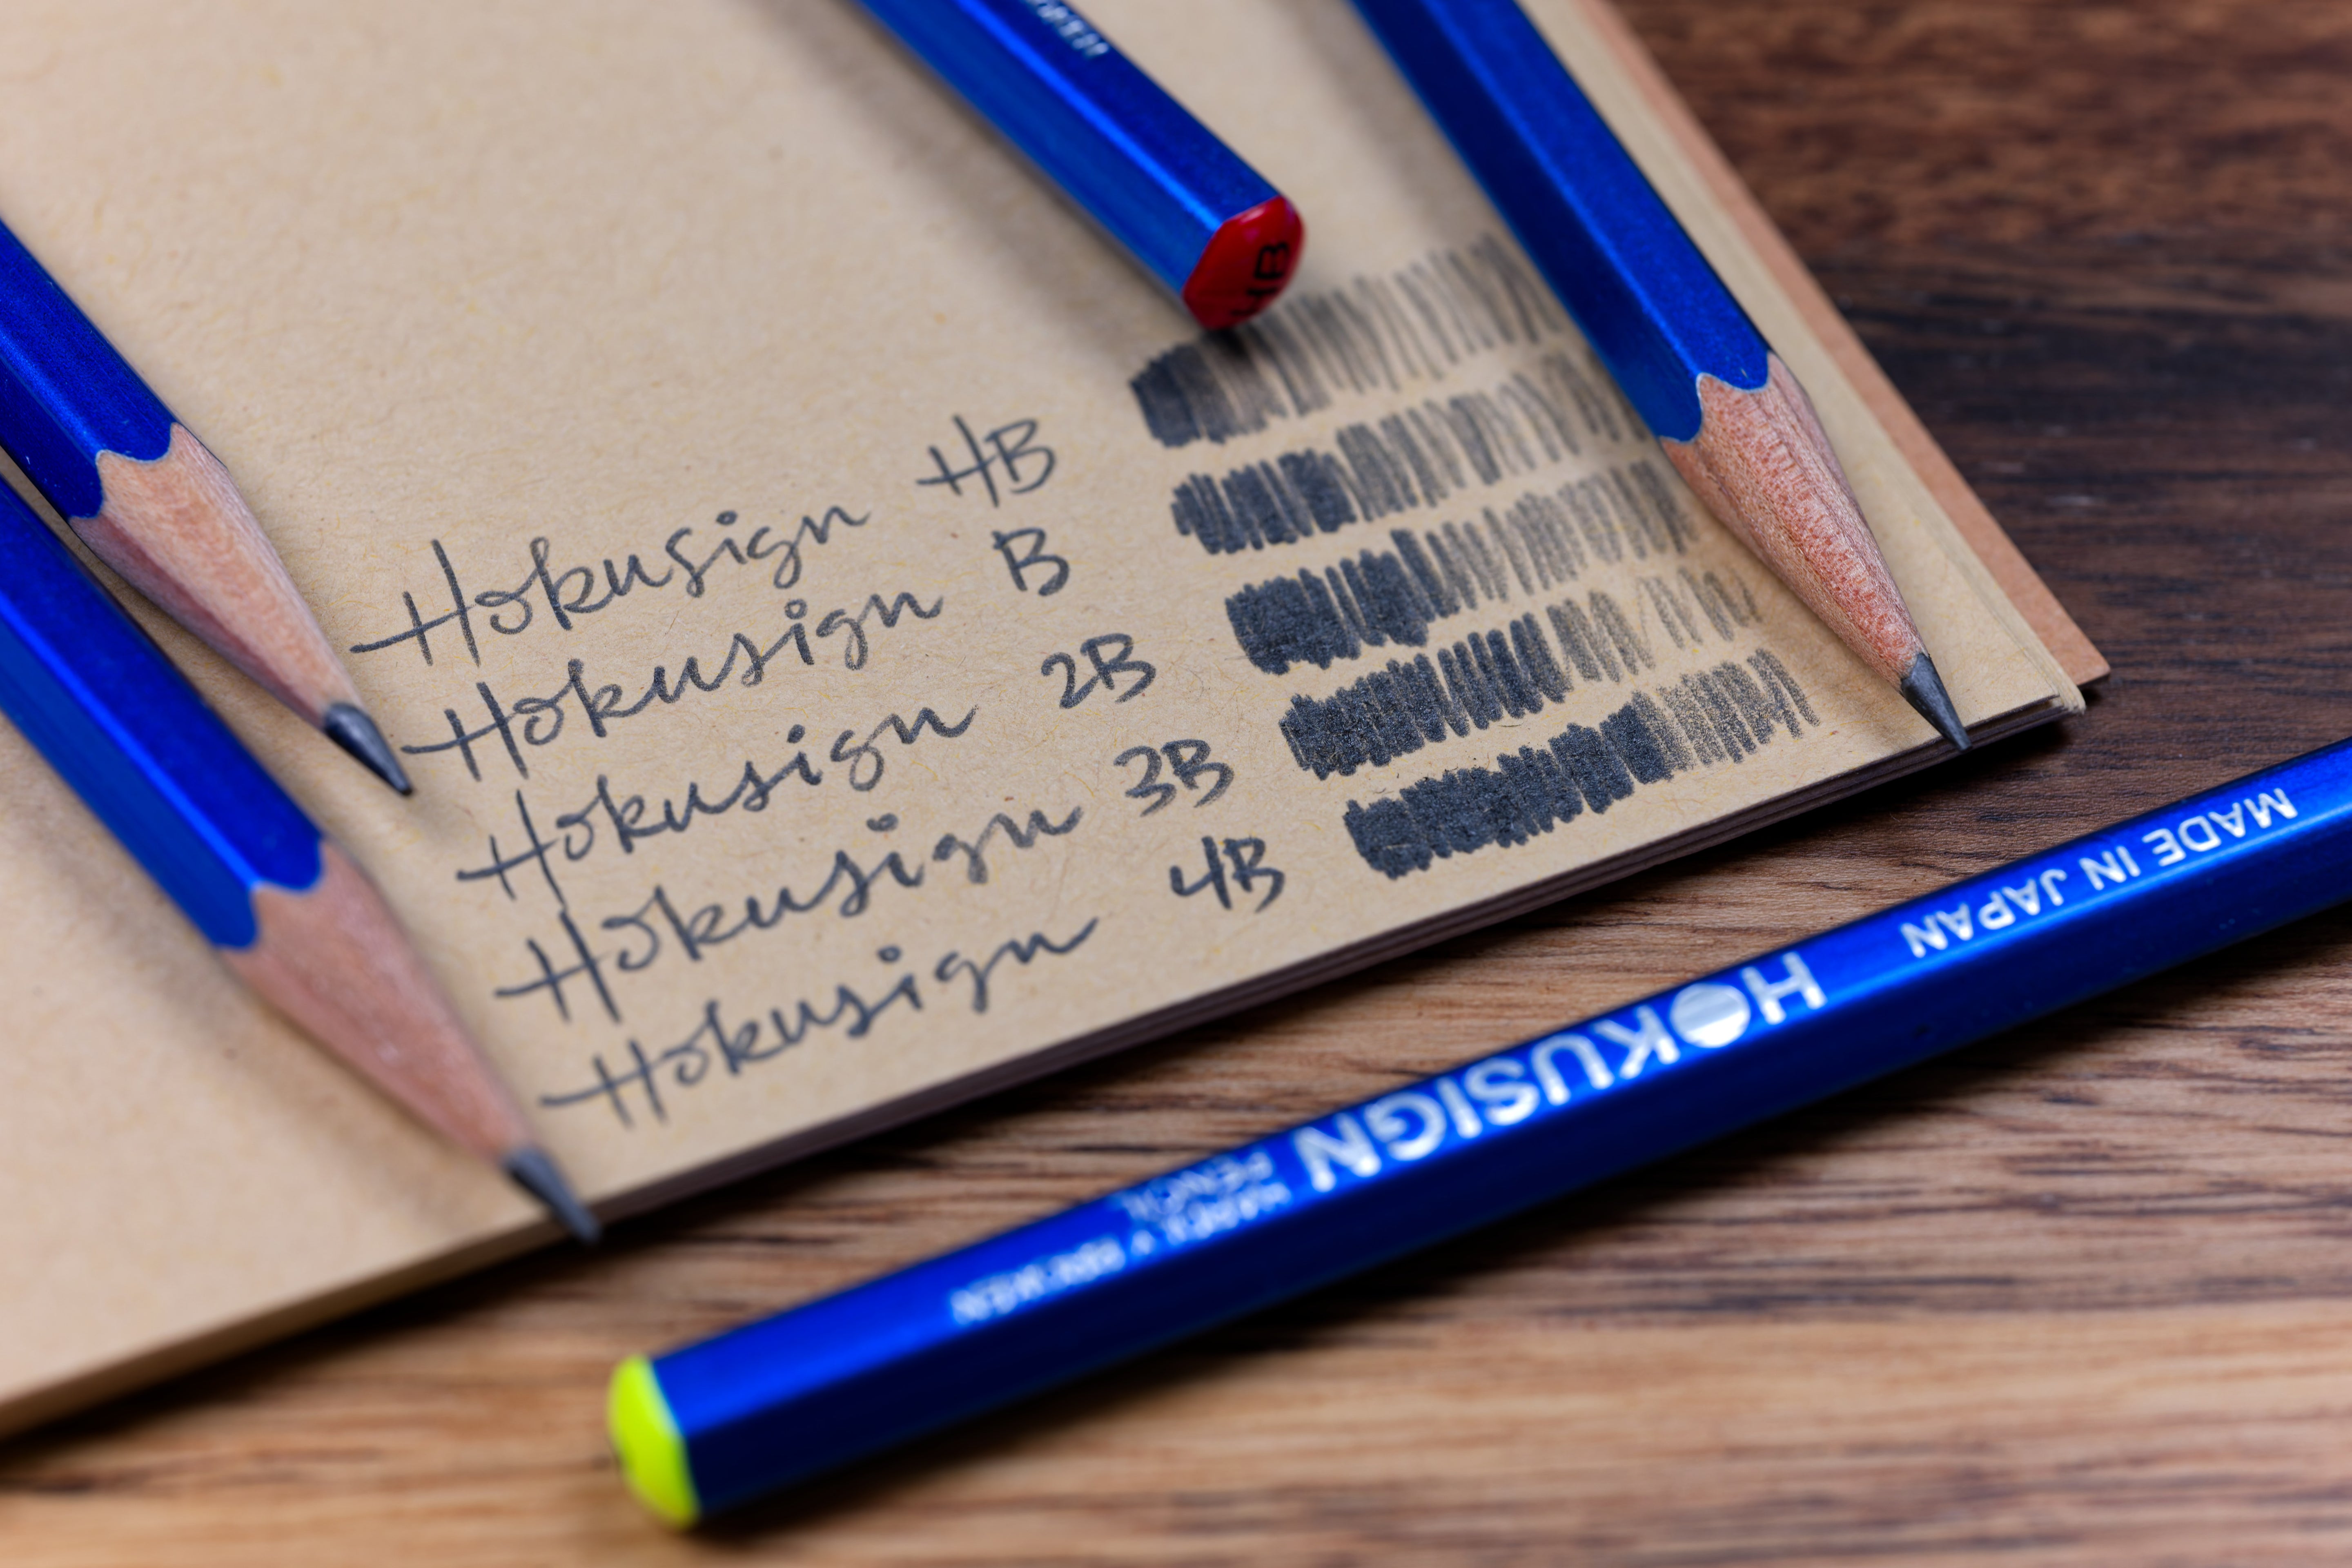 HB
Hokusign HB
Hokusign B
Hokusign 2B
Hokusign 3B
Hokusign 4B
MADE IN JAPAN
HOKUSIGN
PENCIL